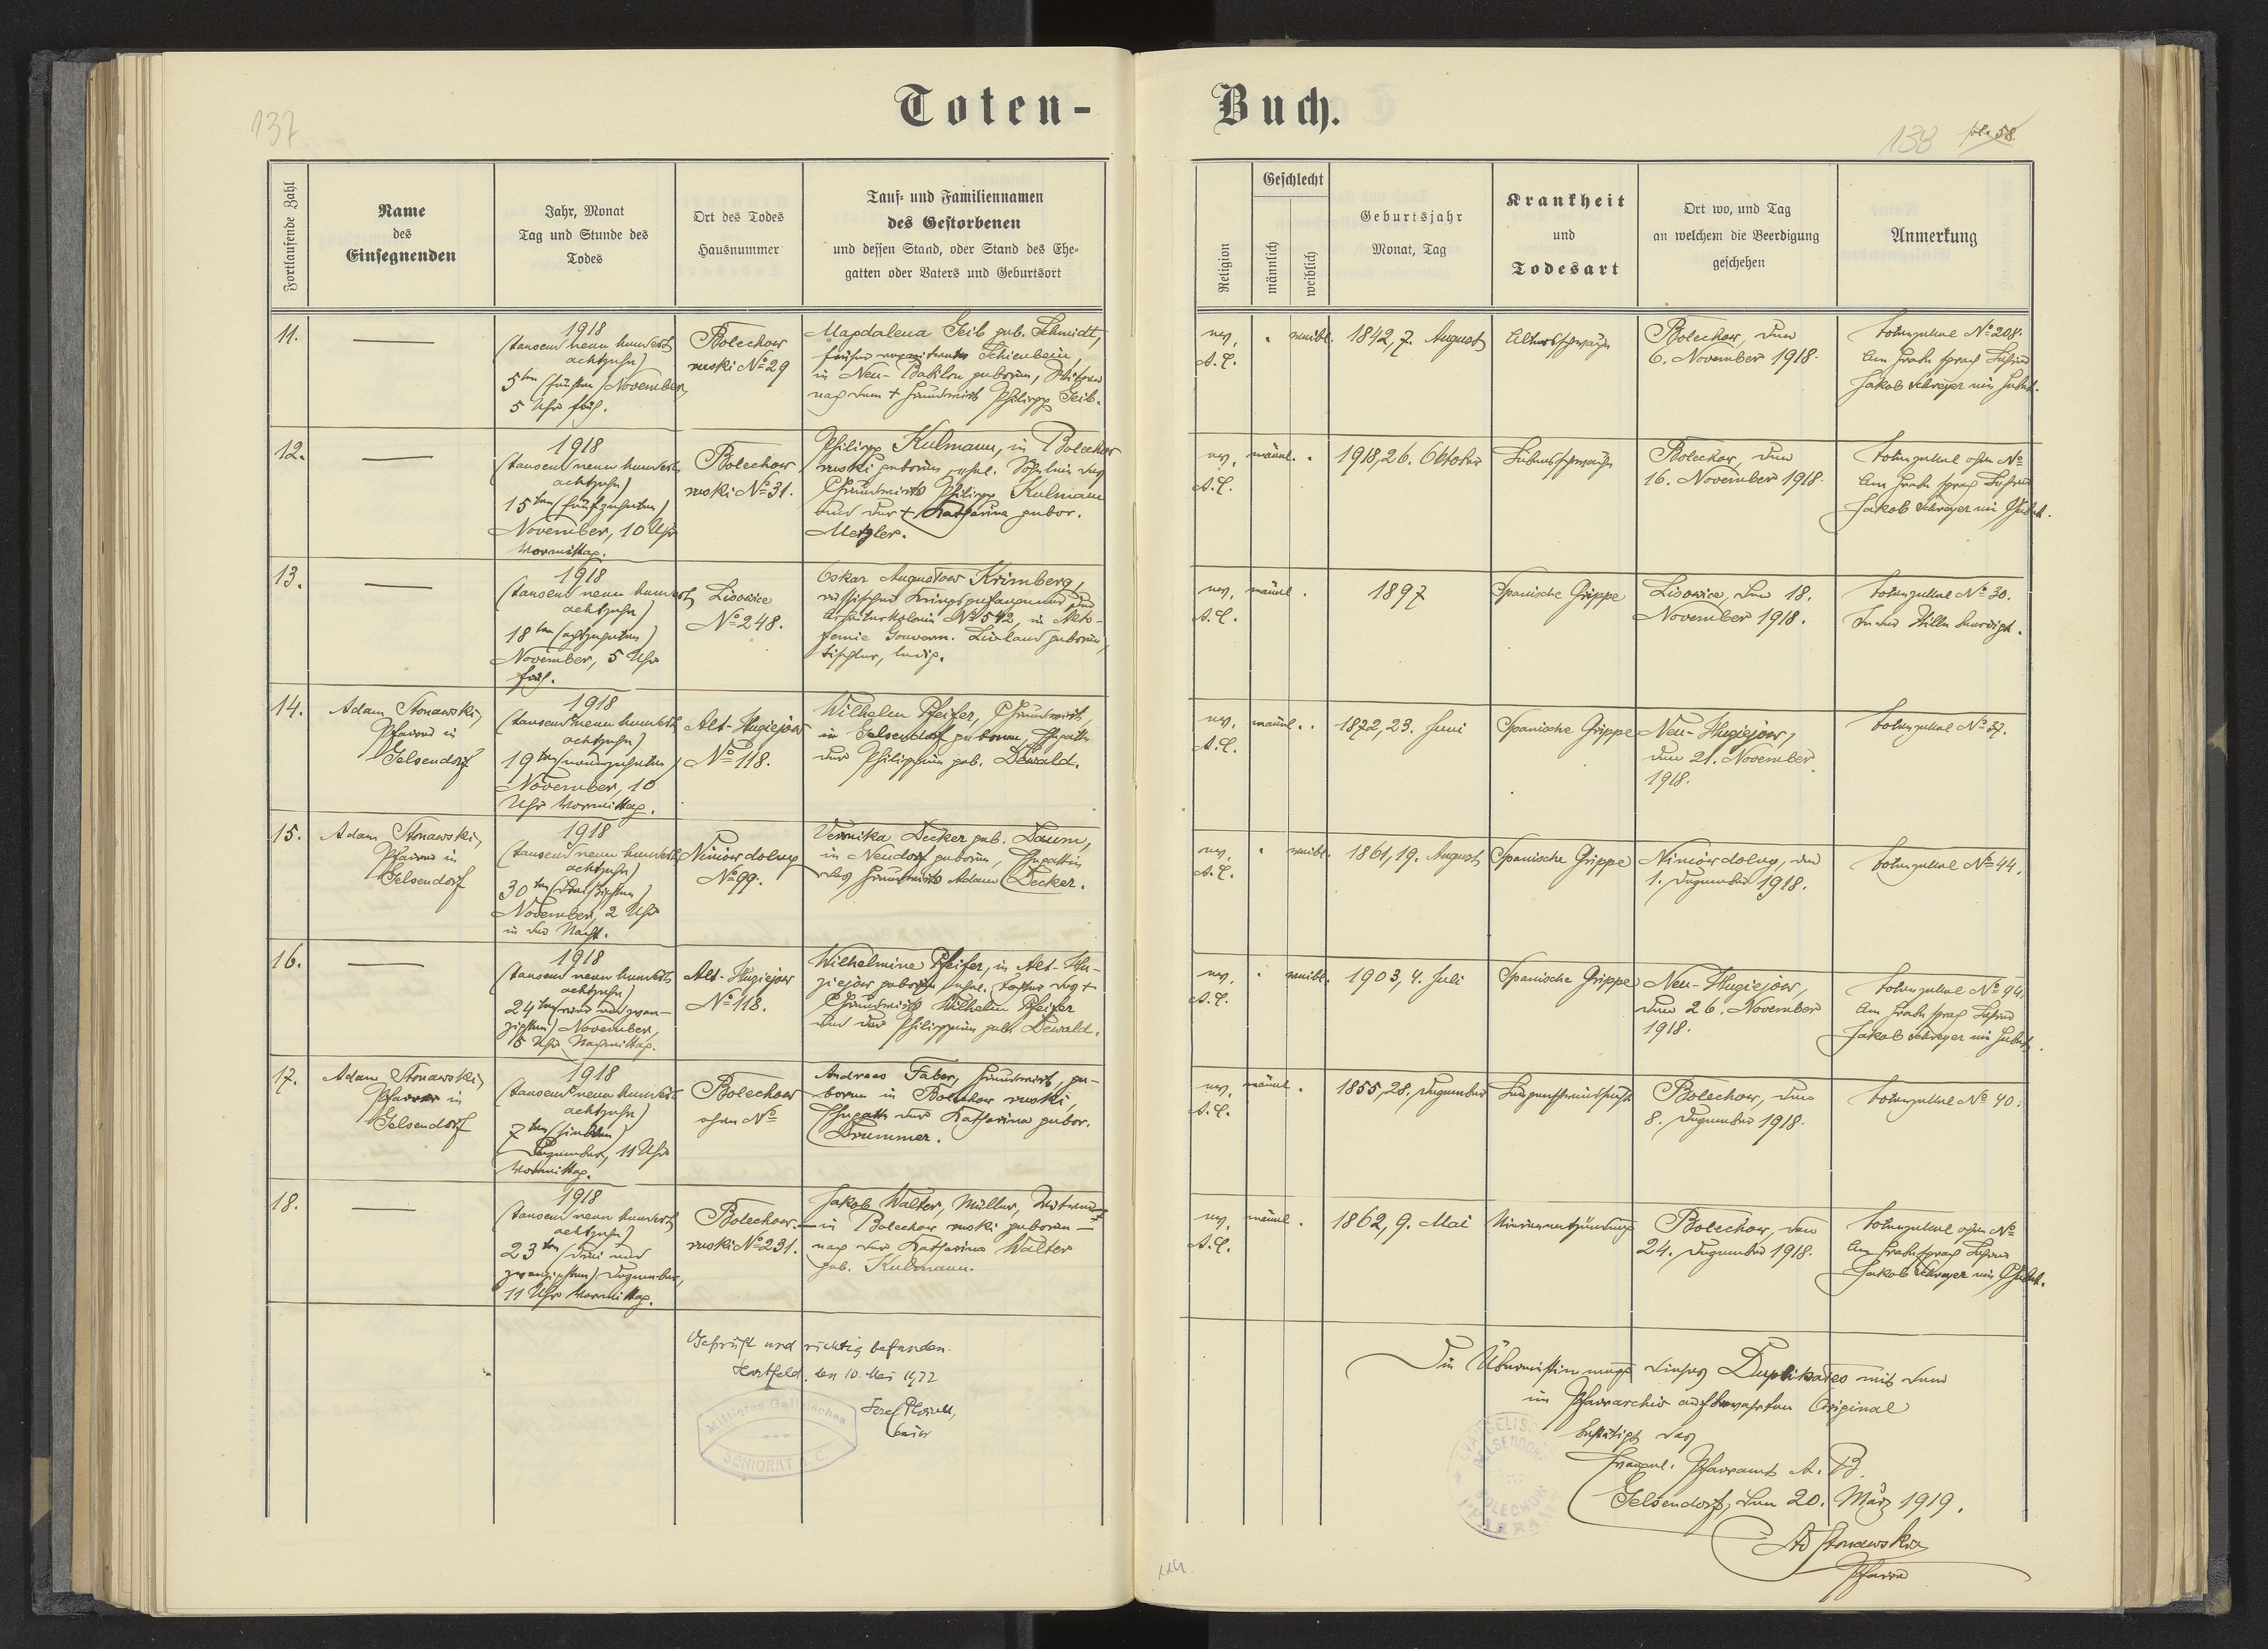 Toten-
Buch.
137
138
fol. 58.
Fortlaufende Zahl
Name
des
Einsegnenden
Jahr, Monat
Tag und Stunde des
Todes
Ort des Todes
Hausnummer
Tauf- und Familiennamen
des Gestorbenen
und dessen Stand, oder Stand des Ehe-
gatten oder Vaters und Geburtsort
Religion
Geschlecht
männlich
weiblich
Geburtsjahr
Monat, Tag
Krankheit
und
Todesart
Ort wo, und Tag
an welchem die Beerdigung
geschehen
Anmerkung
11.
1918
(tausend neun hundert
achtzehn)
5ten (fünften) November,
5 Uhr früh.
Bolechow
ruski No 29
Magdalena Geib geb. Schmidt,
früher verwitwete Schienbein,
in Neu-Babilon geboren, Witwe
nach dem + Grundwirt Philipp Geib.
ev.
A.C.
weibl.
1842, 7. August
Altersschwäche
Bolechow, den
6. November 1918.
Totenzettel No 208.
Am Grabe sprach Lehrer
Jakob Schreyer ein Gebet.
12.
1918
(tausend neun hundert
achtzehn)
15ten (fünfzehnten)
November, 10 Uhr
Vormittag.
Bolechow
ruski No 31.
Philipp Kulmann, in Bolechow
ruski geboren, ehel. Söhnlein des
Grundwirts Philipp Kulmann
und der + Katharina gebor.
Metzler.
ev.
A.C.
männl.
1918, 26. Oktober
Lebensschwäche
Bolechow, den
16. November 1918.
Totenzettel ohne No
Am Grabe sprach Lehrer
Jakob Schreyer ein Gebet.
13.
1918
(tausend neun hundert
achtzehn)
18ten (achtzehnten)
November, 5 Uhr
früh.
Lisowice
No 248.
Oskar Augustow Krimberg,
russischer Kriegsgefangener der
Arbeiterkolonie No 542, in
Gouvern. Livland geboren,
Tischler, ledig.
ev.
A.C.
männl.
1897
Spanische Grippe
Lisowice, den 18.
November 1918.
Totenzettel No 30.
In der Stille beerdigt.
14.
Adam Stonawski,
Pfarrer in
Gelsendorf
1918
(tausend neun hundert
achtzehn)
19ten (neunzehnten)
November, 10
Uhr Vormittag.
Alt-Hugiejow
No 118.
Wilhelm Pfeifer, Grundwirt,
in Gelsendorf geboren, Ehegatte
der Philippine geb. Dewald.
ev.
A.C.
männl.
1872, 23. Juni
Spanische Grippe
Neu-Hugiejow,
den 21. November
1918.
Totenzettel No 37.
15.
Adam Stonawski,
Pfarrer in
Gelsendorf
1918
(tausend neun hundert
achtzehn)
30ten (dreissigsten)
November, 2 Uhr
in der Nacht.
Niniów dolny
No 99.
Veronika Decker geb. Daum,
in Neudorf geboren, Ehegattin
des Grundwirts Adam Decker.
ev.
A.C.
weibl.
1861, 19. August
Spanische Grippe
Niniów dolny, den
1. Dezember 1918.
Totenzettel No 44.
16.
1918
(tausend neun hundert
achtzehn)
24ten (vier und zwan-
zigsten) November,
5 Uhr Nachmittag.
Alt-Hugiejow
No 118.
Wilhelmine Pfeifer, in Alt-Hu-
giejow geboren, ehel. Tochter des +
Grundwirts Wilhelm Pfeifer
und der Philippine geb. Dewald.
ev.
A.C.
weibl.
1903, 4. Juli
Spanische Grippe
Neu-Hugiejow,
den 26. November
1918.
Totenzettel No 94.
Am Grabe sprach Lehrer
Jakob Schreyer ein Gebet.
17.
Adam Stonawski,
Pfarrer in
Gelsendorf
1918
(tausend neun hundert
achtzehn)
7ten (siebten)
Dezember, 11 Uhr
Vormittag.
Bolechow
ohne No
Andreas Faber, Grundwirt, ge-
boren in Bolechow ruski,
Ehegatte der Katharina gebor.
Drummer.
ev.
A.C.
männl.
1855, 28. Dezember
Lungenschwindsucht
Bolechow, den
8. Dezember 1918.
Totenzettel No 40.
18.
1918
(tausend neun hundert
achtzehn)
23ten (drei und
zwanzigsten) Dezember,
11 Uhr Vormittag.
Bolechow
ruski No 231.
Jakob Walter, Müller, Witwer
in Bolechow ruski geboren
nach der Katharina Walter
geb. Kulmann.
ev.
A.C.
männl.
1862, 9. Mai
Nierenentzündung
Bolechow, den
24. Dezember 1918.
Totenzettel ohne No
Am Grabe sprach Lehrer
Jakob Schreyer ein Gebet.
Geprüft und richtig befunden.
Hartfeld, den 10. Mai 1922
Mittleres Galizisches
SENIORAT A. C.
Die Übereinstimmung dieses Duplikates mit dem
im Pfarrarchiv aufbewahrten Original
bestätigt das
Evangel. Pfarramt A. B.
Gelsendorf, den 20. März 1919.
Ad Stonawski
Pfarrer
EVANGELISCHE
GELSENDORF
BOLECHOW
PFARRAMT